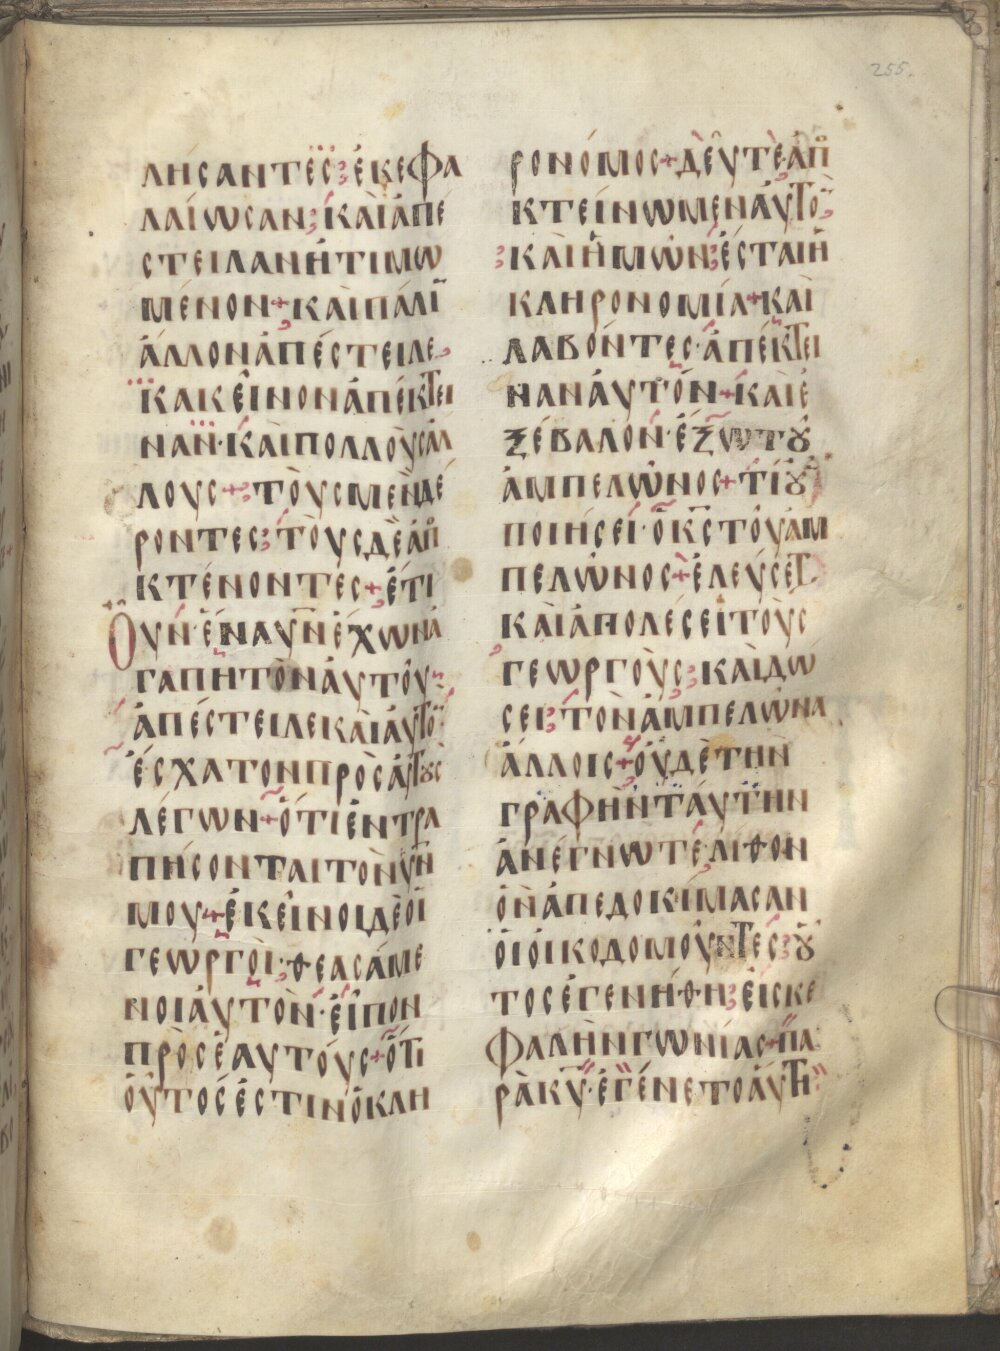 255.
λήσαντες ἐκεφα
λαίωσαν καὶ ἀπέ
στειλαν ἠτιμω
μένον + καὶ πάλῑ
ἄλλον ἀπέστειλε
κακεῖνον ἀπέκτει
ναν · καὶ πολλοὺς ἀλ
λους + τοὺς μεν δέ
ροντες τοὺς δὲ ἀπο
κτένοντες + ἔτι
οὖν · ἕνα ῡν ἔχων ἀ
γαπητὸν ἀυτοῦ
ἀπέστειλε καὶ ἀυτὸ̄
ἔσχατον πρὸς ἀυτοὺς
λέγων + ὅτι ἐντρα
πήσονται τὸν ῡν
μου + ἐκεῖνοι δὲ οἱ
γεωργοὶ · θεασάμε
νοι ἀυτὸν · εἶπον
πρὸς ἑαυτούς + ὅτι
οὗτος ἐστιν ὁ κλη
ρονόμος + δεῦτε ἀπο
κτείνωμεν ἀυτὸ̄
καὶ ἡμῶν ἔσται ἡ
κληρονομία + καὶ
λαβόντες · ἀπέκτει
ναν ἀυτὸν + καὶ ἐ
ξέβαλον · ἔξω τοῦ
ἀμπελῶνος + τί οὖ
ποιήσει · ὁ κ̄ς τοῦ ἀμ
πελῶνος + ἐλεύσετ
καὶ ἀπολέσει τοὺς
γεωργοὺς καὶ δώ
σει τὸν ἀμπελῶνα
ἄλλοις + οὐδὲ τὴν
γραφὴν ταύτην
ἀνέγνωτε λίθον
ὃν ἀπεδοκίμασαν
οἱ οἰκοδομοῦντες οὗ
τος ἐγενήθη εἰς κε
φαλὴν γωνίας + πα
ρὰ κ̄ῡ · ἐγένετο ἀύτη